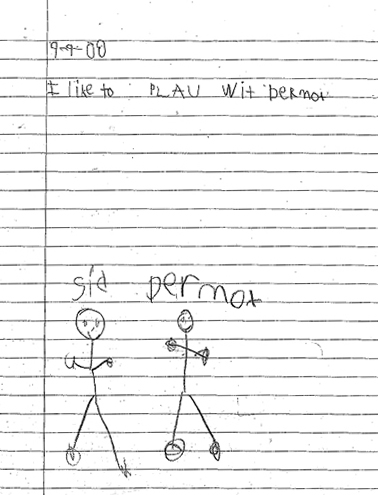 9-9-08
I like to PLAU Wit Dermot
sid Dermot